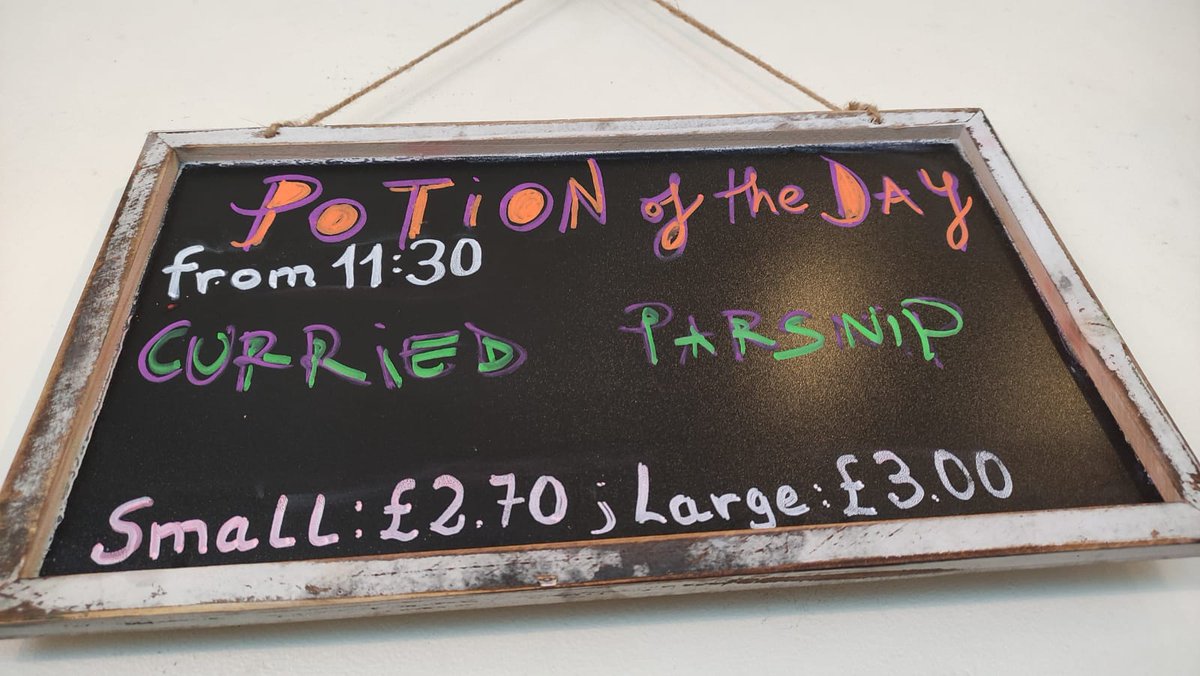 POTION of the DAY
from 11:30
CURRIED PARSNIP
Small: £2.70 ; Large: £3.00